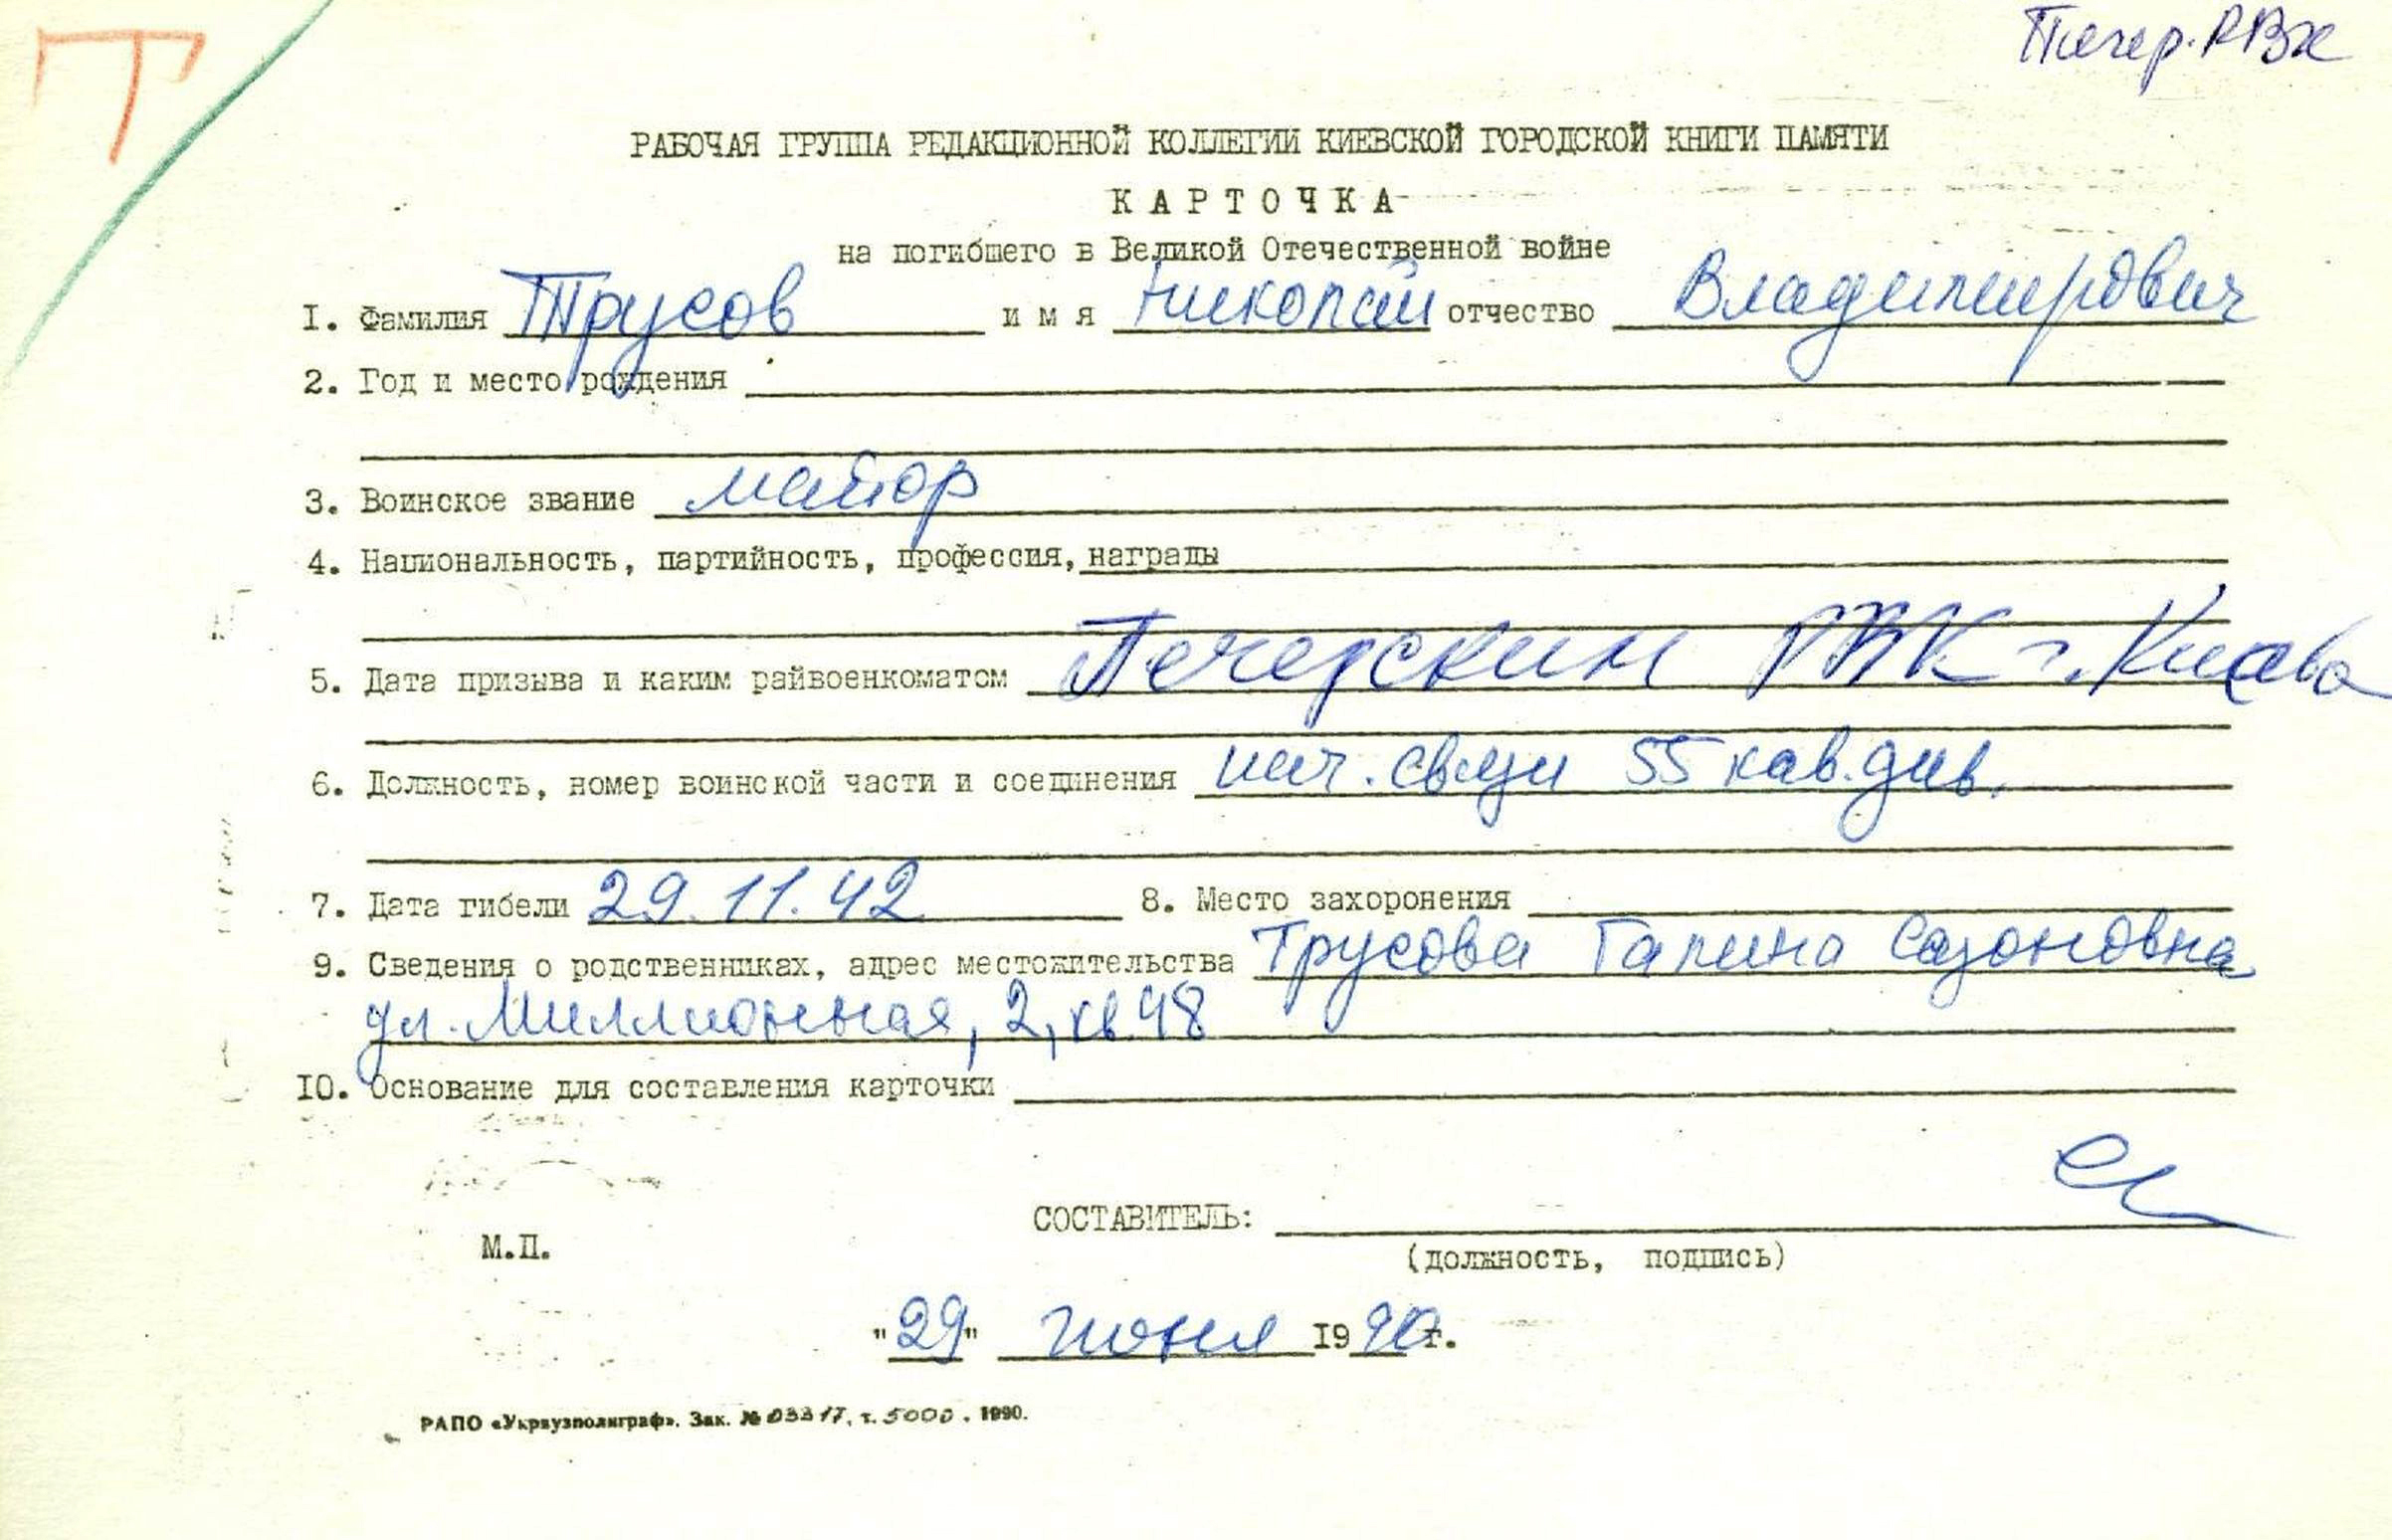 Т
Печер. РВК
РАБОЧАЯ ГРУППА РЕДАКЦИОННОЙ КОЛЛЕГИИ КИЕВСКОЙ ГОРОДСКОЙ КНИГИ ПАМЯТИ
КАРТОЧКА
на погибшего в Великой Отечественной войне
I. Фамилия Трусов имя Николай отчество Владимирович
2. Год и место рождения
3. Воинское звание майор
4. Национальность, партийность, профессия, награды
5. Дата призыва и каким райвоенкоматом Печерским РВК г. Киева
6. Должность, номер воинской части и соединения нач. связи 55 кав. див.
7. Дата гибели 29.11.42 8. Место захоронения
9. Сведения о родственниках, адрес местожительства Трусова Галина Сазоновна
ул. Миллионная, 2, кв. 48
IO. Основание для составления карточки
СОСТАВИТЕЛЬ:
М.П.
(должность, подпись)
"29" июня 1990г.
РАПО «Укрвузполиграф». Зак. № 03317, т. 5000. 1990.